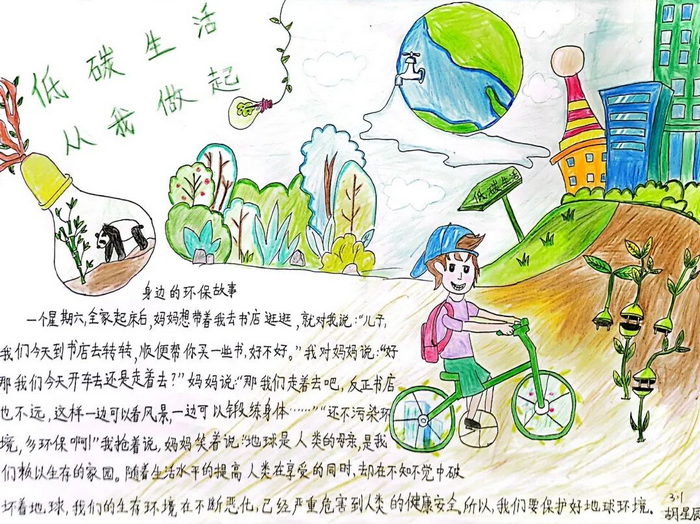 低碳生活
从我做起
低碳生活
身边的环保故事
一个星期六,全家起床后,妈妈想带着我去书店逛逛,就对我说:“儿子,
我们今天到书店去转转,顺便帮你买一些书,好不好。”我对妈妈说:“好
那我们今天开车去还是走着去?”妈妈说:“那我们走着去吧,反正书店
也不远,这样一边可以看风景,一边可以锻练身体……”“还不污染环
境,多环保啊!”我抢着说,妈妈笑着说:“地球是人类的母亲,是我
们赖以生存的家园。随着生活水平的提高人类在享受的同时,却在不知不觉中破
坏着地球,我们的生存环境在不断恶化,已经严重危害到人类的健康安全,所以,我们要保护好地球环境。
3.1
胡